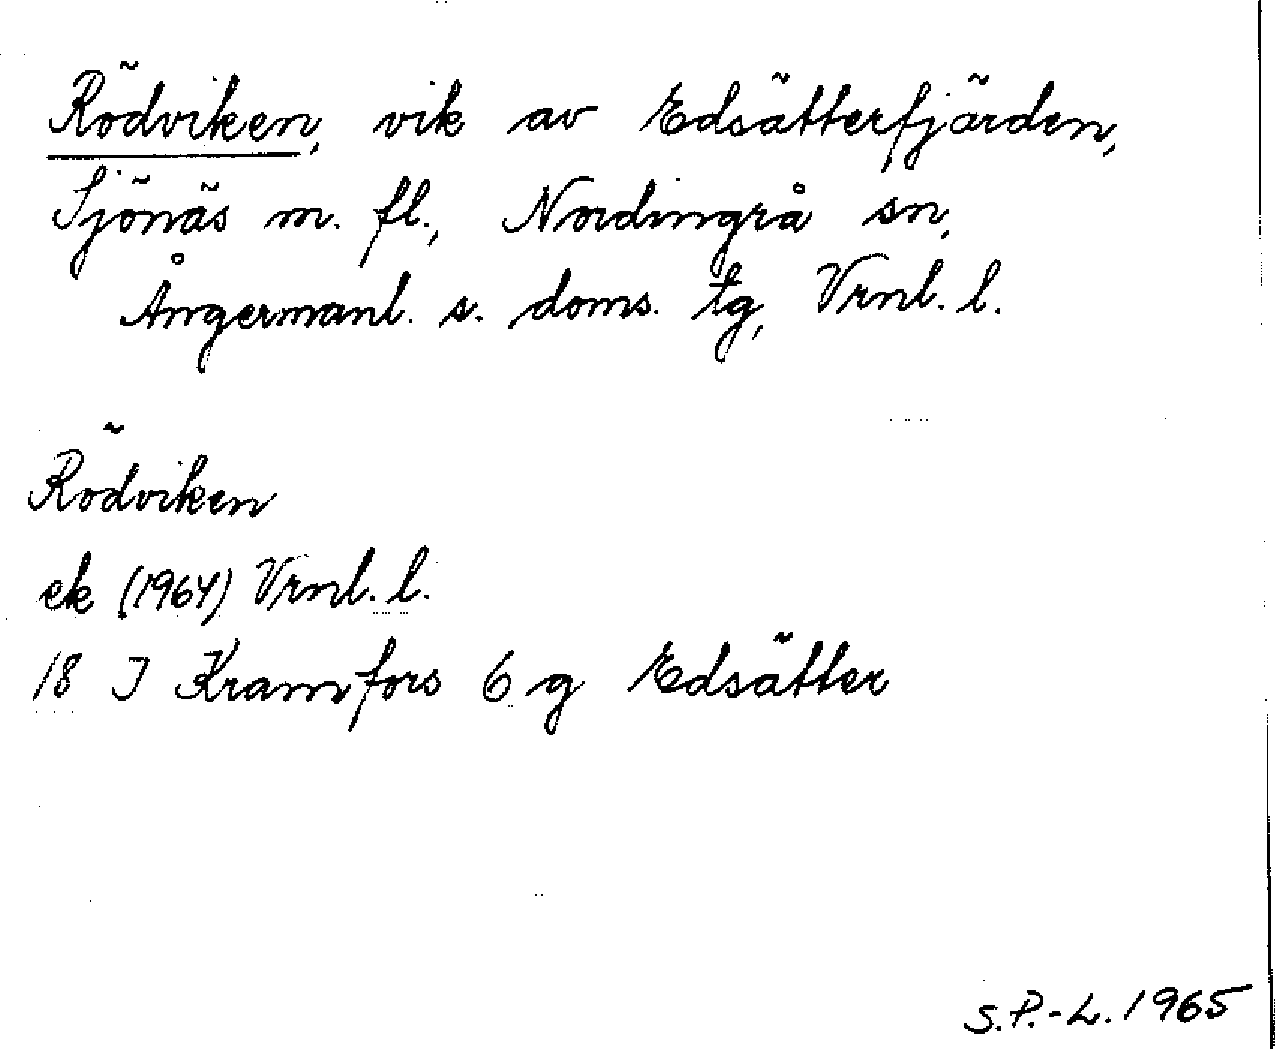 Rödviken, vik av Edsätterfjärden,
Sjönäs m. fl., Nordingrå sn,
Ångermanl. s. doms. tg, Vrnl. l.
Rödviken
ek (1964) Vrnl. l.
18 J Kramfors 6 g Edsätter
S.P.-L. 1965